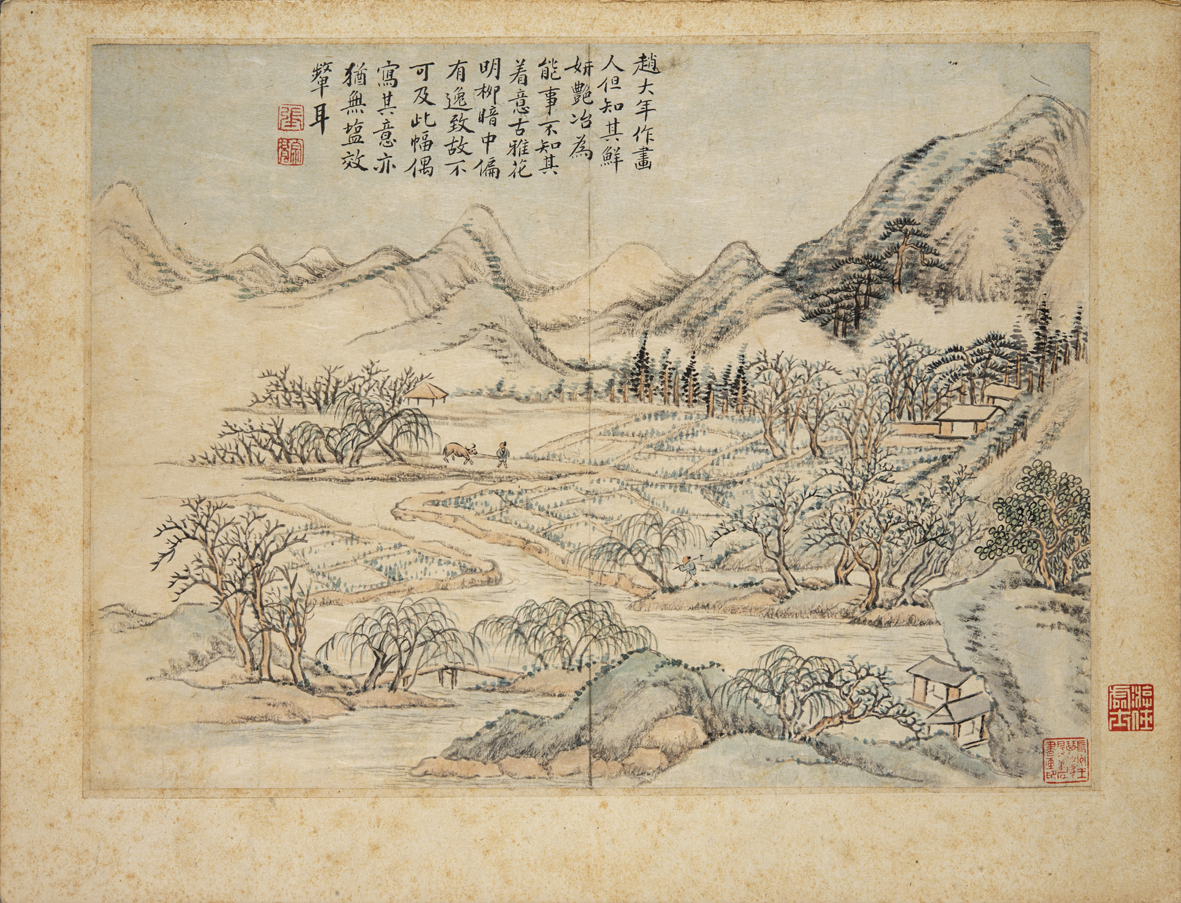 趙大年作畫
人但知其鮮
妍艷冶為
能事不知其
着意古雅花
明柳暗中偏
有逸致故不
可及此幅偶
寫其意亦
猶無塩效
顰耳